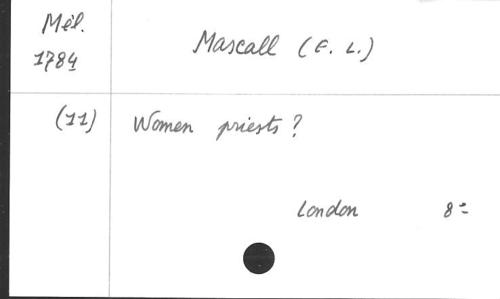 Mél.
1784
Mascall (E. L.)
(11) Women priests?
London 8º